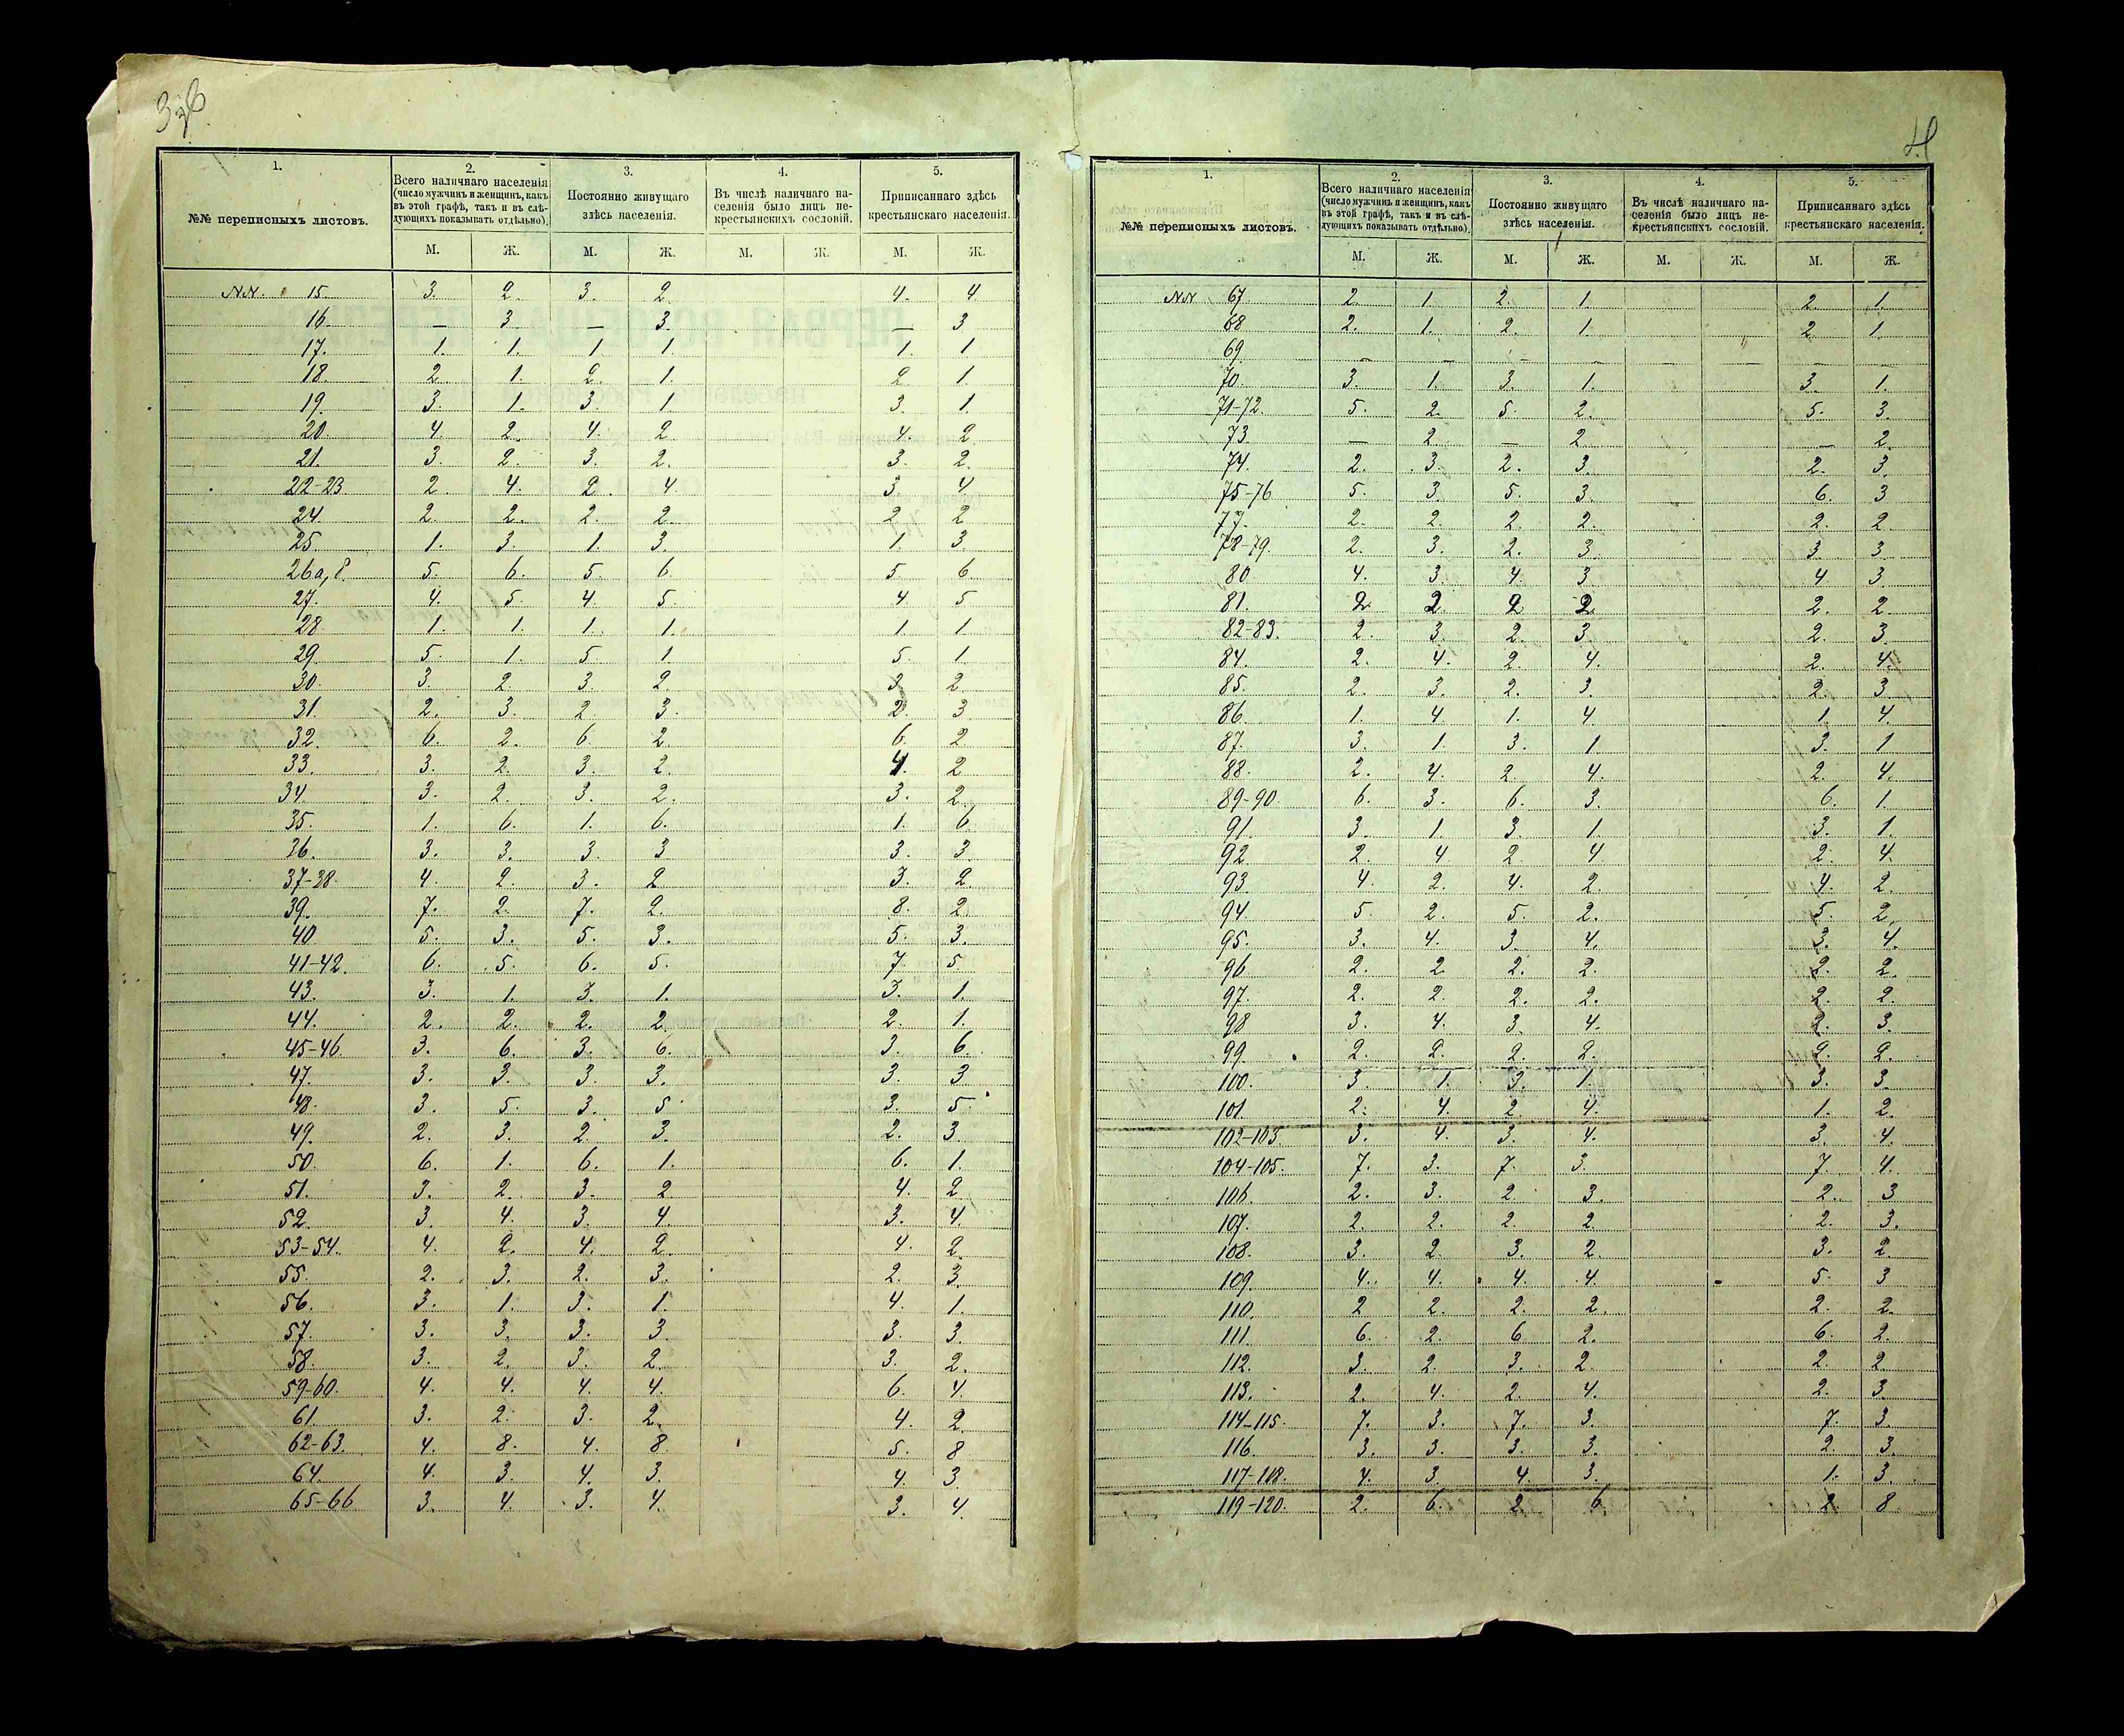 3 об.
1. 2. 3. 4. 5.
№№ переписныхъ листовъ. Всего наличнаго населенія (число мужчинъ и женщинъ, какъ въ этой графѣ, такъ и въ слѣдующихъ показывать отдѣльно). Постоянно живущаго здѣсь населенія. Въ числѣ наличнаго населенія было лицъ некрестьянскихъ сословій. Приписаннаго здѣсь крестьянскаго населенія.
М. Ж. М. Ж. М. Ж. М. Ж.
NN. 15. 3. 2. 3. 2. 4. 4
16. — 3. — 3. — 3
17. 1. 1. 1. 1. 1. 1
18. 2. 1. 2. 1. 2 1.
19. 3. 1. 3. 1. 3. 1.
20. 4. 2. 4. 2. 4. 2
21. 3. 2. 3. 2. 3. 2.
22-23 2. 4. 2. 4. 3. 4.
24. 2. 2. 2. 2. 2 2
25. 1. 3. 1. 3. 1. 3.
26а, 5. 6. 5. 6. 5. 6.
27. 4. 5. 4. 5. 4. 5
28. 1. 1. 1. 1. 1. 1
29. 5. 1. 5. 1. 5. 1.
30. 3. 2. 3. 2. 3. 2.
31. 2. 3. 2 3. 2. 3
32. 6. 2. 6. 2. 6. 2
33. 3. 2. 3. 2. 4. 2
34. 3. 2. 3. 2. 3. 2.
35. 1. 6. 1. 6. 1. 6.
36. 3. 3. 3. 3 3. 3.
37-38. 4. 2. 3. 2 3. 2.
39. 7. 2. 7. 2. 8. 2
40. 5. 3. 5. 3. 5. 3.
41-42. 6. 5. 6. 5. 7. 5.
43. 3. 1. 3. 1. 3. 1.
44. 2. 2. 2. 2. 2. 1.
45-46. 3. 6. 3. 6. 3. 6.
47. 3. 3. 3. 3. 3. 3
48. 3. 5. 3. 5. 3. 5.
49. 2. 3. 2. 3. 2. 3.
50. 6. 1. 6. 1. 6. 1.
51. 3. 2. 3. 2. 4. 2
52. 3. 4. 3. 4. 3. 4.
53-54. 4. 2. 4. 2. 4. 2.
55. 2. 3. 2. 3. 2. 3.
56. 3. 1. 3. 1. 4. 1.
57. 3. 3. 3. 3 3. 3.
58. 3. 2. 3. 2. 3. 2.
59-60. 4. 4. 4. 4. 6. 4.
61. 3. 2. 3. 2. 4. 2
62-63. 4. 8. 4. 8 5. 8
64. 4. 3. 4. 3. 4. 3.
65-66 3. 4. 3. 4. 3. 4.
4
1. 2. 3. 4. 5.
№№ переписныхъ листовъ. Всего наличнаго населенія (число мужчинъ и женщинъ, какъ въ этой графѣ, такъ и въ слѣдующихъ показывать отдѣльно). Постоянно живущаго здѣсь населенія. Въ числѣ наличнаго населенія было лицъ некрестьянскихъ сословій. Приписаннаго здѣсь крестьянскаго населенія.
М. Ж. М. Ж. М. Ж. М. Ж.
NN 67 2. 1. 2. 1. 2. 1.
68 2. 1. 2. 1. 2 1.
69. — — — — — — — —
70. 3. 1. 3. 1. 3. 1.
71-72. 5. 2. 5. 2. 5. 3.
73. — 2. — 2. — 2.
74. 2. 3. 2. 3. 2. 3.
75-76 5. 3. 5. 3. 6. 3
77. 2. 2. 2. 2. 2. 2.
78-79. 2. 3. 2. 3. 3. 3.
80 4. 3. 4. 3 4 3
81. 2. 2. 2 2. 2. 2.
82-83. 2. 3. 2. 3. 2. 3
84. 2. 4. 2. 4. 2. 4.
85. 2. 3. 2. 3. 2. 3
86. 1. 4. 1. 4 1. 4.
87. 3. 1. 3. 1 3. 1
88. 2. 4. 2 4. 2. 4.
89-90. 6. 3. 6. 3. 6. 1.
91. 3. 1. 3. 1. 3. 1.
92. 2. 4 2. 4. 2. 4.
93. 4. 2. 4. 2. 4. 2.
94. 5. 2. 5. 2. 5. 2.
95. 3. 4. 3. 4. 3. 4.
96 2. 2. 2. 2. 2. 2.
97. 2. 2. 2. 2. 2. 2.
98 3. 4. 3. 4. 2. 3.
99. 2. 2. 2. 2. 2. 2.
100. 3. 1. 3. 1. 3. 3.
101. 2. 4. 2 4. 1. 2.
102-103. 3. 4. 3. 4. 3. 4.
104-105. 7. 3. 7. 3. 7. 4.
106. 2. 3. 2 3. 2. 3
107. 2. 2. 2. 2. 2. 3.
108. 3. 2. 3. 2. 3. 2.
109. 4. 4. 4. 4. 5. 3
110. 2 2. 2. 2. 2. 2.
111. 6. 2. 6 2. 6. 2.
112. 3. 2. 3. 2. 2. 2
113. 2. 4. 2. 4. 2. 3.
114-115. 7. 3. 7. 3. 7. 3.
116 3. 3. 3. 3. 2. 3.
117-118. 4. 3. 4. 3. 1. 3.
119-120. 2. 6. 2. 6. 2. 8.